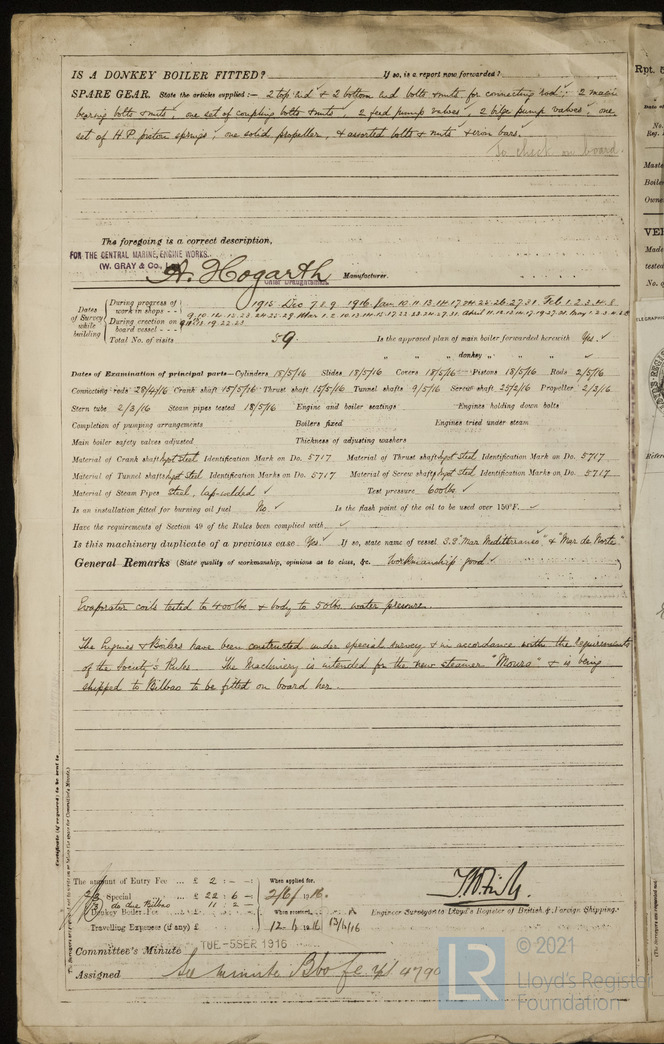 IS A DONKEY BOILER FITTED? If so, is a report now forwarded?
SPARE GEAR. State the articles supplied:— 2 top end & 2 bottom end bolts & nuts for connecting rod, 2 main
bearing bolts & nuts, one set of coupling bolts & nuts, 2 feed pump valves, 2 bilge pump valves, one
set of H.P. piston springs, one solid propeller, & assorted bolts & nuts & iron bars.
To check on board.
The foregoing is a correct description,
FOR THE CENTRAL MARINE ENGINE WORKS.
(W. GRAY & Co.,
A. Hogarth Manufacturer.
CHIEF DRAUGHTSMAN.
Dates of Survey while building
During progress of work in shops - - 1915 Dec 7. 9. 1916 Jan 10. 11. 13. 14. 17. 24. 25. 26. 27. 31. Feb 1. 2. 3. 4. 8
During erection on board vessel - - -
Total No. of visits 59. Is the approved plan of main boiler forwarded herewith Yes.
" " " donkey " "
Dates of Examination of principal parts—Cylinders 15/5/16 Slides 18/5/16 Covers 18/5/16 Pistons 18/5/16 Rods 2/5/16
Connecting rods 28/4/16 Crank shaft 15/5/16 Thrust shaft 15/5/16 Tunnel shafts 9/5/16 Screw shaft 25/2/16 Propeller 2/3/16
Stern tube 2/3/16 Steam pipes tested 18/5/16 Engine and boiler seatings Engines holding down bolts
Completion of pumping arrangements Boilers fixed Engines tried under steam
Main boiler safety valves adjusted Thickness of adjusting washers
Material of Crank shaft Ingot Steel Identification Mark on Do. 5717 Material of Thrust shaft Ingot Steel Identification Mark on Do. 5717
Material of Tunnel shafts Ingot Steel Identification Marks on Do. 5717 Material of Screw shafts Ingot Steel Identification Marks on Do. 5717
Material of Steam Pipes Steel, lap-welded Test pressure 600 lbs.
Is an installation fitted for burning oil fuel No. Is the flash point of the oil to be used over 150°F.
Have the requirements of Section 49 of the Rules been complied with
Is this machinery duplicate of a previous case Yes If so, state name of vessel S.S. "Mar Mediterraneo" & "Mar de Norte"
General Remarks (State quality of workmanship, opinions as to class, &c. Workmanship good.
Evaporator coils tested to 400 lbs. & body to 50 lbs. water pressure.
The Engines & Boilers have been constructed under special survey & in accordance with the requirements
of the Society's Rules. The Machinery is intended for the new steamer "Mouro" & is being
shipped to Bilbao to be fitted on board her.
The amount of Entry Fee ... £ 2 : - : - When applied for,
Special ... £ 22 : 6 : - 2/6/1916.
do due Bilbao 11 : 2 : -
Donkey Boiler Fee ... £ When received,
Travelling Expenses (if any) £ 12.6.1916 13/6/16
Engineer Surveyor to Lloyd's Register of British & Foreign Shipping.
Committee's Minute TUE - 5 SER 1916
Assigned See minute Bbo
© 2021
Lloyd's Register
Foundation
LR
Rpt. 5